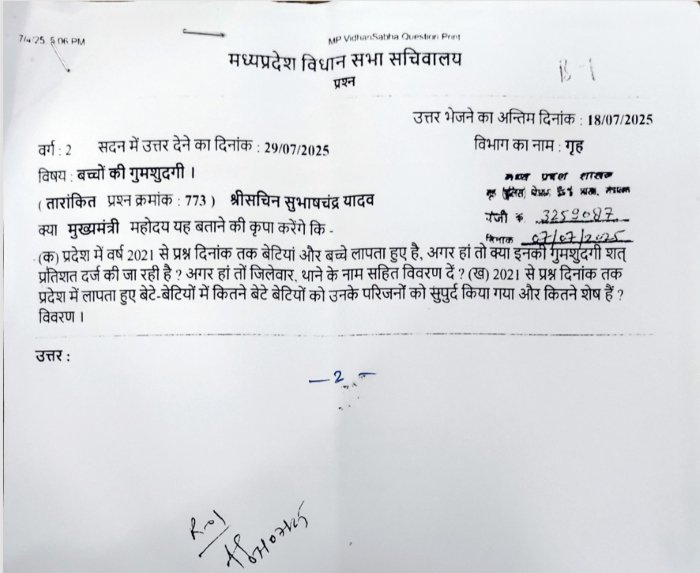 7/4/25, 5:06 PM
MP VidhanSabha Question Print
मध्यप्रदेश विधान सभा सचिवालय
प्रश्न
B-1
उत्तर भेजने का अन्तिम दिनांक : 18/07/2025
वर्ग : 2 सदन में उत्तर देने का दिनांक : 29/07/2025
विभाग का नाम : गृह
विषय : बच्चों की गुमशुदगी ।
मध्य प्रदेश शासन
( तारांकित प्रश्न क्रमांक : 773 ) श्रीसचिन सुभाषचंद्र यादव
पंजी क्र. 3259087
क्या मुख्यमंत्री महोदय यह बताने की कृपा करेंगे कि -
दिनांक 07/07/2025
(क) प्रदेश में वर्ष 2021 से प्रश्न दिनांक तक बेटियां और बच्चे लापता हुए है, अगर हां तो क्या इनकी गुमशुदगी शत्
प्रतिशत दर्ज की जा रही है ? अगर हां तों जिलेवार, थाने के नाम सहित विवरण दें ? (ख) 2021 से प्रश्न दिनांक तक
प्रदेश में लापता हुए बेटे-बेटियों में कितने बेटे बेटियों को उनके परिजनों को सुपुर्द किया गया और कितने शेष हैं ?
विवरण ।
उत्तर :
—2—